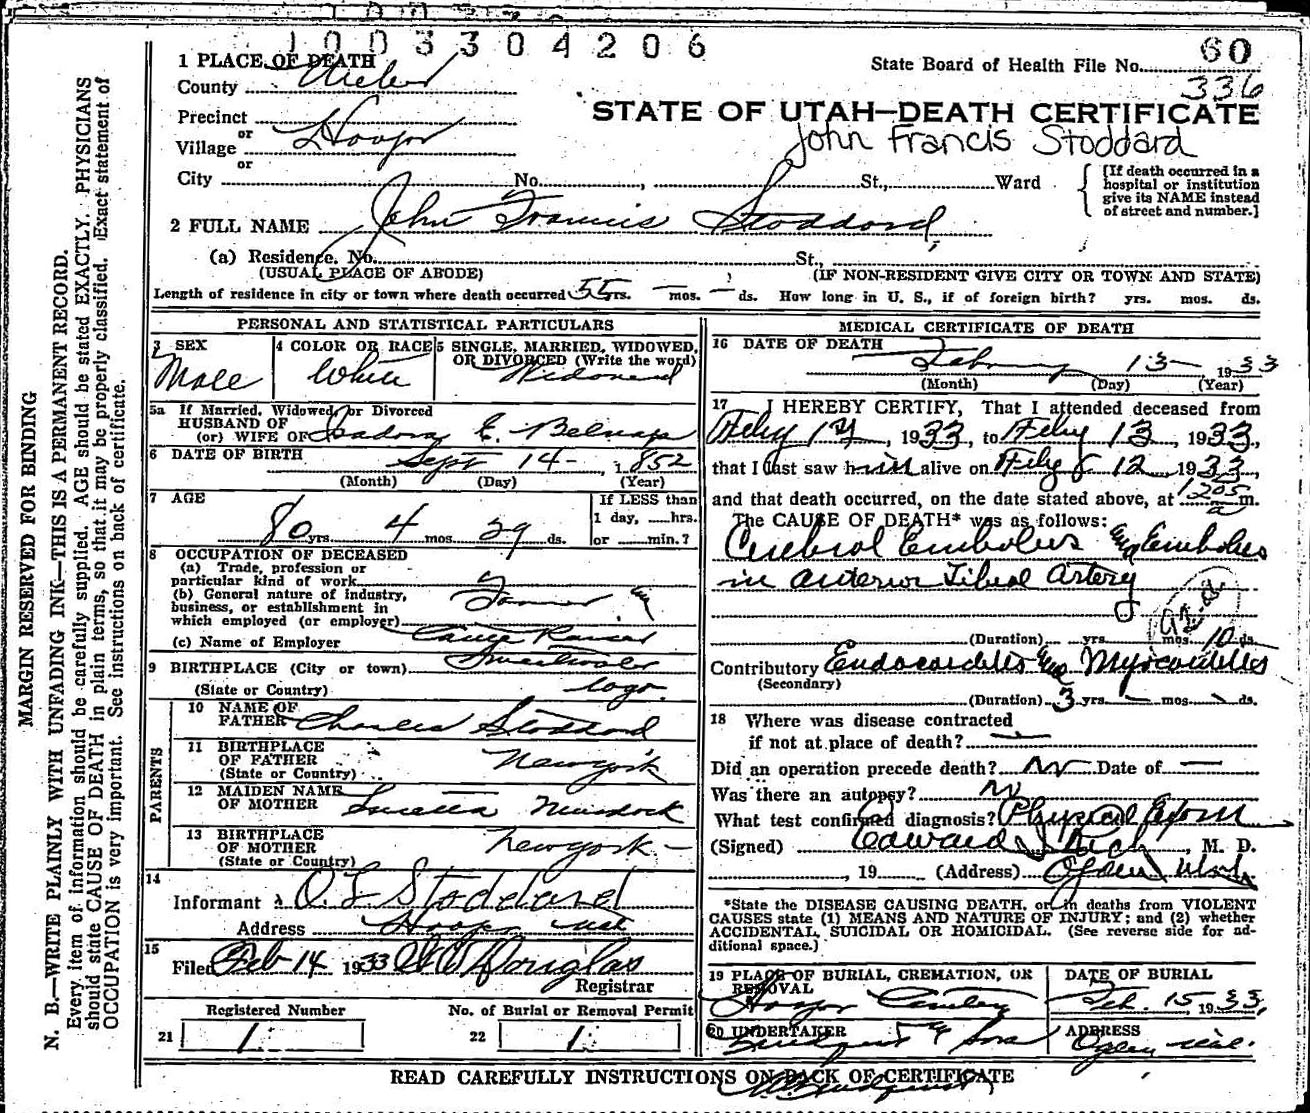 1003304206
60
1 PLACE OF DEATH
State Board of Health File No.
336
County Weber
STATE OF UTAH—DEATH CERTIFICATE
Precinct
John Francis Stoddard
or
Village Hooper
or
City No. , St., Ward
[If death occurred in a hospital or institution give its NAME instead of street and number.]
2 FULL NAME John Francis Stoddard
(a) Residence. No. St.,
(USUAL PLACE OF ABODE) (IF NON-RESIDENT GIVE CITY OR TOWN AND STATE)
Length of residence in city or town where death occurred 55 yrs. — mos. — ds. How long in U. S., if of foreign birth? yrs. mos. ds.
PERSONAL AND STATISTICAL PARTICULARS
3 SEX
Male
4 COLOR OR RACE
White
5 SINGLE, MARRIED, WIDOWED, OR DIVORCED (Write the word)
Widowed
5a If Married, Widowed, or Divorced
HUSBAND OF
(or) WIFE OF Isadora E. Belnap
6 DATE OF BIRTH Sept 14 - , 1852
(Month) (Day) (Year)
7 AGE
80 yrs. 4 mos. 29 ds.
If LESS than
1 day, hrs.
or min.?
8 OCCUPATION OF DECEASED
(a) Trade, profession or
particular kind of work
(b) General nature of industry,
business, or establishment in
which employed (or employer) Farmer
(c) Name of Employer
9 BIRTHPLACE (City or town)
(State or Country)
PARENTS
10 NAME OF
FATHER Charles Stoddard
11 BIRTHPLACE
OF FATHER New York
(State or Country)
12 MAIDEN NAME
OF MOTHER Lucetta Murdock
13 BIRTHPLACE
OF MOTHER New York -
(State or Country)
14
Informant O L Stoddard
Address Hooper Utah
15
Filed Feb 14 1933 Douglas
Registrar
Registered Number
21 1
No. of Burial or Removal Permit
22 1
MEDICAL CERTIFICATE OF DEATH
16 DATE OF DEATH
February 13 1933
(Month) (Day) (Year)
17 I HEREBY CERTIFY, That I attended deceased from
Feby , 1933, to Feby 13, 1933,
that I last saw him alive on Feby 12 1933,
and that death occurred, on the date stated above, at 1205 a m.
The CAUSE OF DEATH* was as follows:
Cerebral Embolus and Embolus
in anterior Tibial Artery
(Duration) yrs. mos. 10 ds.
Contributory Endocarditis and Myocarditis
(Secondary)
(Duration) 3 yrs. — mos. ds.
18 Where was disease contracted
if not at place of death?
Did an operation precede death? No Date of —
Was there an autopsy? No
What test confirmed diagnosis? Physical
(Signed) Edward I Rich, M. D.
, 19 (Address) Ogden Utah
*State the DISEASE CAUSING DEATH, or in deaths from VIOLENT
CAUSES state (1) MEANS AND NATURE OF INJURY; and (2) whether
ACCIDENTAL, SUICIDAL OR HOMICIDAL. (See reverse side for ad-
ditional space.)
19 PLACE OF BURIAL, CREMATION, OR
REMOVAL
Hooper Cemetery
DATE OF BURIAL
Feb. 15, 1933,
20 UNDERTAKER
Lindquist & Sons
ADDRESS
Ogden Utah.
READ CAREFULLY INSTRUCTIONS ON BACK OF CERTIFICATE
MARGIN RESERVED FOR BINDING
N. B.—WRITE PLAINLY WITH UNFADING INK—THIS IS A PERMANENT RECORD.
Every item of information should be carefully supplied. AGE should be stated EXACTLY. PHYSICIANS
should state CAUSE OF DEATH in plain terms, so that it may be properly classified. Exact statement of
OCCUPATION is very important. See instructions on back of certificate.